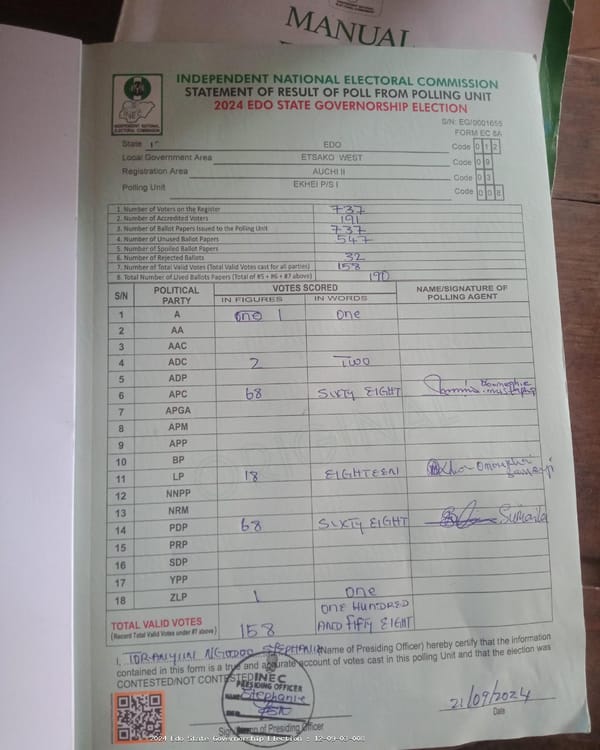 MANUAL
INDEPENDENT NATIONAL ELECTORAL COMMISSION
STATEMENT OF RESULT OF POLL FROM POLLING UNIT
2024 EDO STATE GOVERNORSHIP ELECTION
INEC
INDEPENDENT NATIONAL
ELECTORAL COMMISSION
S/N: EG/0001655
FORM EC 8A
State EDO Code 0 1 2
Local Government Area ETSAKO WEST Code 0 9
Registration Area AUCHI II Code 0 3
Polling Unit EKHEI P/S I Code 0 0 8
1. Number of Voters on the Register 737
2. Number of Accredited Voters 191
3. Number of Ballot Papers Issued to the Polling Unit 737
4. Number of Unused Ballot Papers 547
5. Number of Spoiled Ballot Papers
6. Number of Rejected Ballots 32
7. Number of Total Valid Votes (Total Valid Votes cast for all parties) 158
8. Total Number of Used Ballots Papers (Total of #5 + #6 + #7 above) 190
S/N POLITICAL PARTY VOTES SCORED NAME/SIGNATURE OF POLLING AGENT
IN FIGURES IN WORDS
1 A one 1 One
2 AA
3 AAC
4 ADC 2 Two
5 ADP
6 APC 68 SIXTY EIGHT
7 APGA
8 APM
9 APP
10 BP
11 LP 18 EIGHTEEN
12 NNPP
13 NRM
14 PDP 68 SIXTY EIGHT
15 PRP
16 SDP
17 YPP
18 ZLP 1 One
TOTAL VALID VOTES 158 ONE HUNDRED AND FIFTY EIGHT
(Record Total Valid Votes under #7 above)
I, STEPHANIE (Name of Presiding Officer) hereby certify that the information
contained in this form is a true and accurate account of votes cast in this polling Unit and that the election was
CONTESTED/NOT CONTESTED
INEC
PRESIDING OFFICER
NAME Stephanie
21/09/2024
Date
of Presiding Officer
2024 Edo State Governorship Election : 12-09-03-008